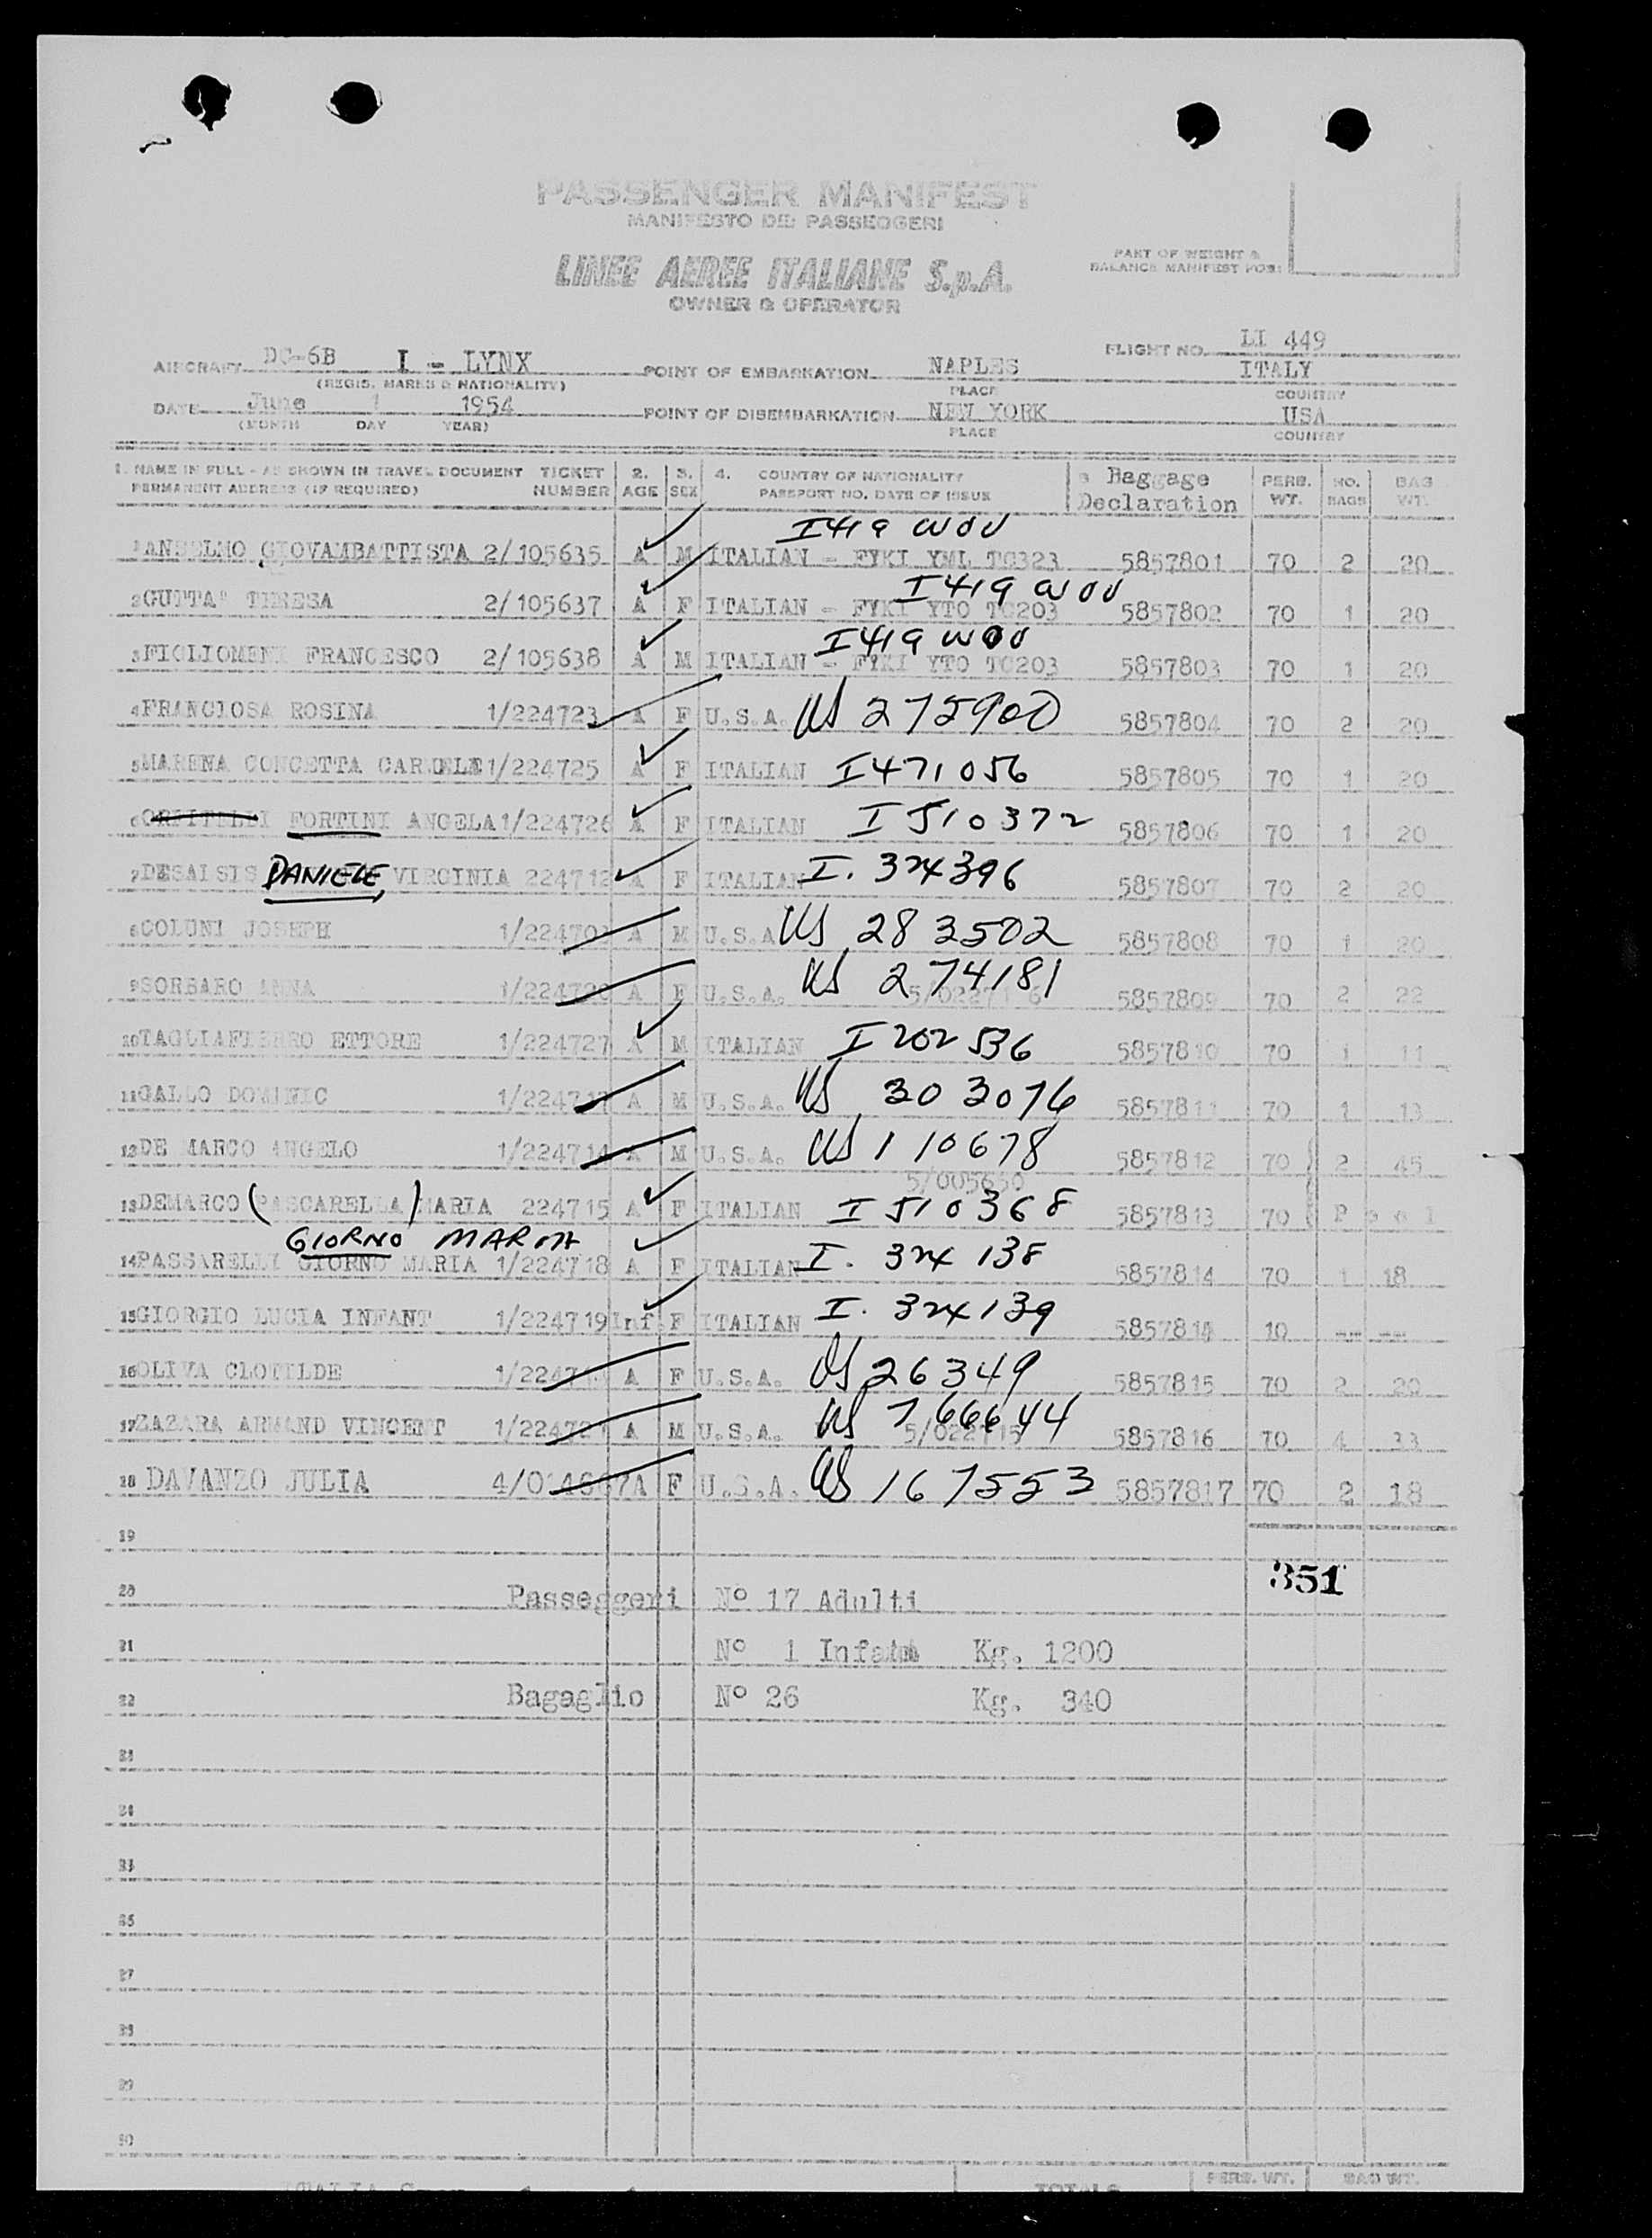 PASSENGER MANIFEST
MANIFESTO DEI PASSEGGERI
LINEE AEREE ITALIANE S.p.A.
OWNER & OPERATOR
PART OF WEIGHT &
BALANCE MANIFEST FOR:
AIRCRAFT DC-6B I - LYNX POINT OF EMBARKATION NAPLES FLIGHT NO. LI 449
ITALY
(REGIS. MARKS & NATIONALITY) PLACE COUNTRY
DATE June 1 1954 POINT OF DISEMBARKATION NEW YORK USA
(MONTH DAY YEAR) PLACE COUNTRY
1. NAME IN FULL - AS SHOWN IN TRAVEL DOCUMENT TICKET 2. 3. 4. COUNTRY OF NATIONALITY Baggage PERS. NO. BAG
PERMANENT ADDRESS (IF REQUIRED) NUMBER AGE SEX PASSPORT NO. DATE OF ISSUE Declaration WT. BAGS WT.
I419 WOU
1 ANSELMO GIOVAMBATTISTA 2/105635 A M ITALIAN - FYKI YML TC323 5857801 70 2 20
I419 WOU
2 GUTTA' TERESA 2/105637 A F ITALIAN - FYKI YTO TC203 5857802 70 1 20
I419 WOU
3 FIGLIOMENI FRANCESCO 2/105638 A M ITALIAN - FYKI YTO TC203 5857803 70 1 20
4 FRANCIOSA ROSINA 1/224723 A F U.S.A. US 275900 5857804 70 2 20
5 MARENA CONCETTA 1/224725 A F ITALIAN I471056 5857805 70 1 20
6 FORTINI ANGELA 1/224726 A F ITALIAN I 510372 5857806 70 1 20
7 DESAISIS DANIELE, VIRGINIA 224712 A F ITALIAN I. 324396 5857807 70 2 20
8 COLUNI JOSEPH A M U.S.A US 283502 5857808 70 1 20
9 SORBARO ANNA A F U.S.A. US 274181 5857809 70 2 22
10 TAGLIAFERRO ETTORE 1/224727 A M ITALIAN I 202536 5857810 70 1 11
11 GALLO DOMINIC A M U.S.A. US 303076 5857811 70 1 13
12 DE MARCO ANGELO 1/224714 A M U.S.A. US 110678 5857812 70 2 45
5/005630
13 DEMARCO (PASCARELLA) MARIA 224715 A F ITALIAN I 510368 5857813 70 P o o l
GIORNO MARIA
14 PASSARELLI GIORNO MARIA 1/224718 A F ITALIAN I. 324138 5857814 70 1 18
15 GIORGIO LUCIA INFANT 1/224719 Inf F ITALIAN I. 324139 5857814 10 -- --
16 OLIVA CLOTILDE A F U.S.A. US 26349 5857815 70 2 20
17 ZAZARA ARMAND VINCENT A M U.S.A. US 766644 5857816 70 4 33
18 DAVANZO JULIA A F U.S.A. US 167553 5857817 70 2 18
19
351
20 Passeggeri No 17 Adulti
21 No 1 Infant Kg. 1200
22 Bagaglio No 26 Kg. 340
23
24
25
26
27
28
29
30
TOTALS PERS. WT. BAG WT.